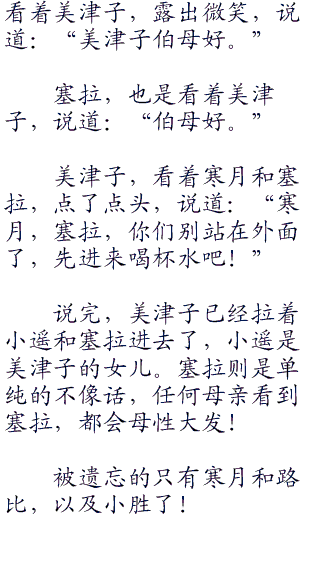 看着美津子，露出微笑，说
道：“美津子伯母好。”
塞拉，也是看着美津
子，说道：“伯母好。”
美津子，看着寒月和塞
拉，点了点头，说道：“寒
月，塞拉，你们别站在外面
了，先进来喝杯水吧！”
说完，美津子已经拉着
小遥和塞拉进去了，小遥是
美津子的女儿。塞拉则是单
纯的不像话，任何母亲看到
塞拉，都会母性大发！
被遗忘的只有寒月和路
比，以及小胜了！